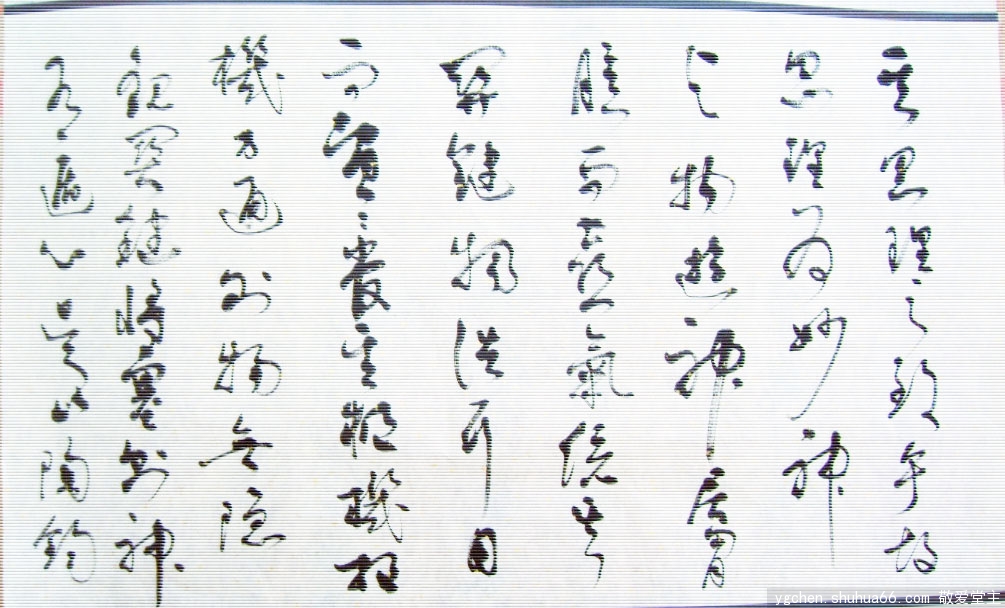 其思理之致乎故
思理為妙神
与物遊神居胸
臆而志氣統其
關鍵物沿耳目
而樞機枢
機方通則物無隐
貌關鍵將塞則神
有遁心是以陶鈞
ygchen.shuhua66.com 敬爱堂主